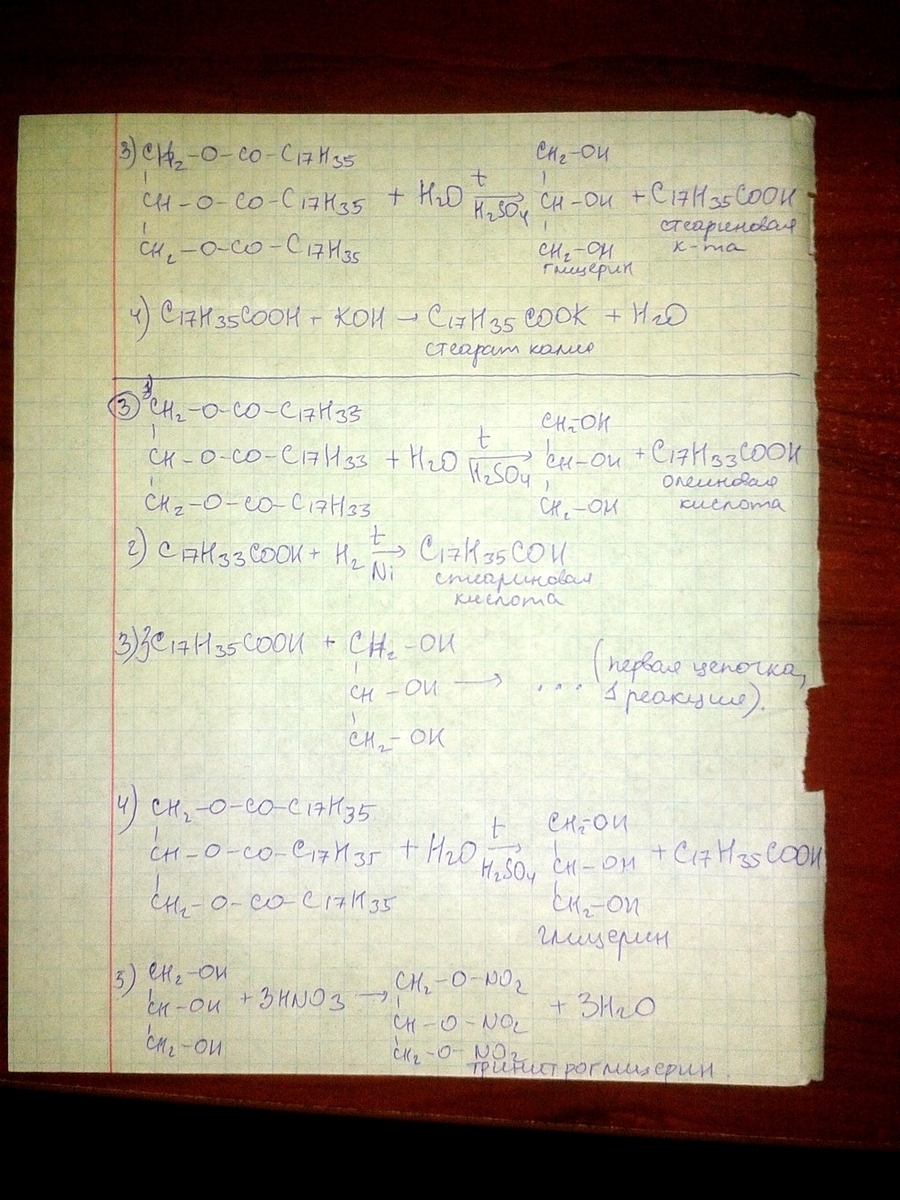 3) CH₂-O-CO-C₁₇H₃₅
CH-O-CO-C₁₇H₃₅ + H₂O t→ H₂SO₄ CH₂-OH CH-OH CH₂-OH + C₁₇H₃₅COOH
CH₂-O-CO-C₁₇H₃₅
глицерин
стеариновая
к-та
4) C₁₇H₃₅COOH + KOH → C₁₇H₃₅COOK + H₂O
стеарат калия
3 1) CH₂-O-CO-C₁₇H₃₃
CH-O-CO-C₁₇H₃₃ + H₂O t→ H₂SO₄ CH₂-OH CH-OH CH₂-OH + C₁₇H₃₃COOH
CH₂-O-CO-C₁₇H₃₃
олеиновая
кислота
2) C₁₇H₃₃COOH + H₂ t→ Ni C₁₇H₃₅COH
стеариновая
кислота
3) 3C₁₇H₃₅COOH + CH₂-OH
CH-OH → ... (первая цепочка,
1 реакция).
CH₂-OH
4) CH₂-O-CO-C₁₇H₃₅
CH-O-CO-C₁₇H₃₅ + H₂O t→ H₂SO₄ CH₂-OH CH-OH CH₂-OH + C₁₇H₃₅COOH
CH₂-O-CO-C₁₇H₃₅
глицерин
5) CH₂-OH CH₂-O-NO₂
CH-OH + 3HNO₃ → CH-O-NO₂ + 3H₂O
CH₂-OH CH₂-O-NO₂
тринитроглицерин.